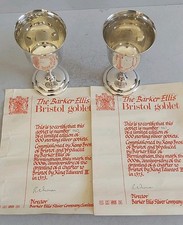 The Barker Ellis
Bristol goblet
This is to certify that this
goblet is number
of a limited edition of
600 sterling silver goblets.
Commissioned by
Bristol and Produced by
Barker Ellis of
Birmingham, they mark the
600th Anniversary of the
granting of the Charter to
Bristol by King Edward III
in 1373.
Director
Barker Ellis Silver Company
The Barker Ellis
Bristol goblet
This is to certify that this
goblet is number
of a limited edition of
600 sterling silver goblets.
Commissioned by
Bristol and Produced by
Barker Ellis of
Birmingham, they mark the
600th Anniversary of the
granting of the Charter to
Bristol by King Edward III
in 1373.
Director
Barker Ellis Silver Company